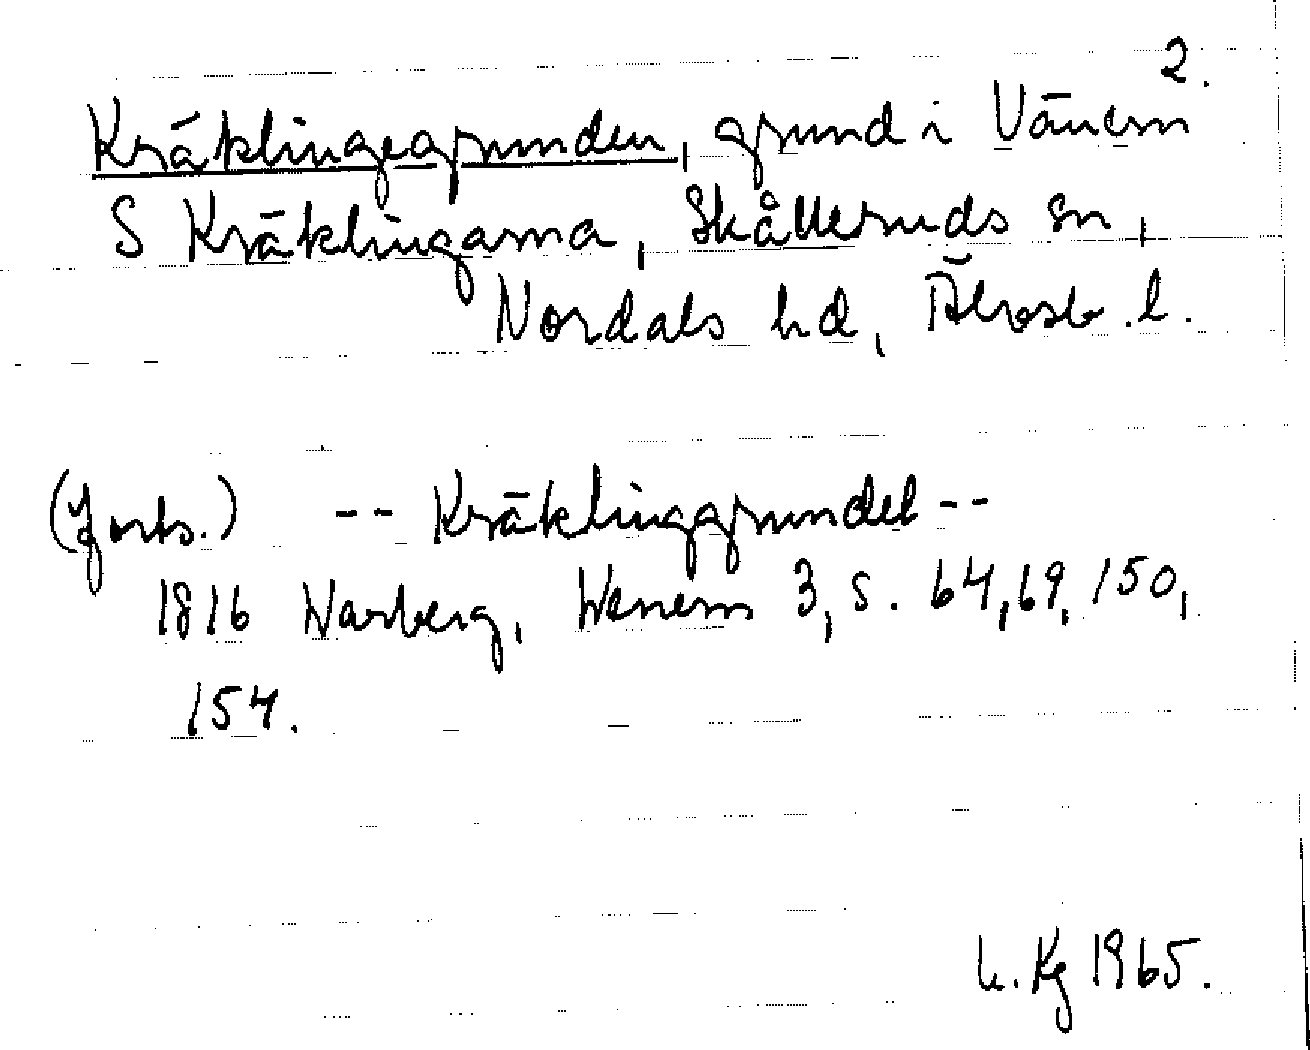 2.
Kräklingegrunden, grund i Vänern
S Kräklingarna, Skålleruds sn,
Nordals hd, Älvsb. l.
(forts.) -- Kräklinggrundet --
1816 Warberg, Wenern 3, s. 64, 69, 150,
154.
Kg 1965.